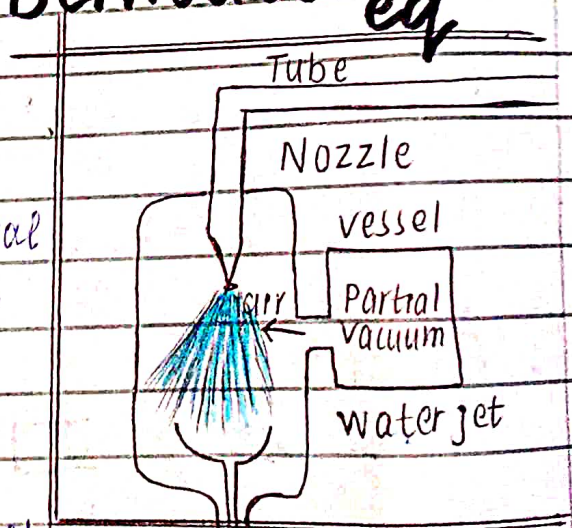 eq
Tube
Nozzle
al
vessel
air
Partial
vacuum
water jet